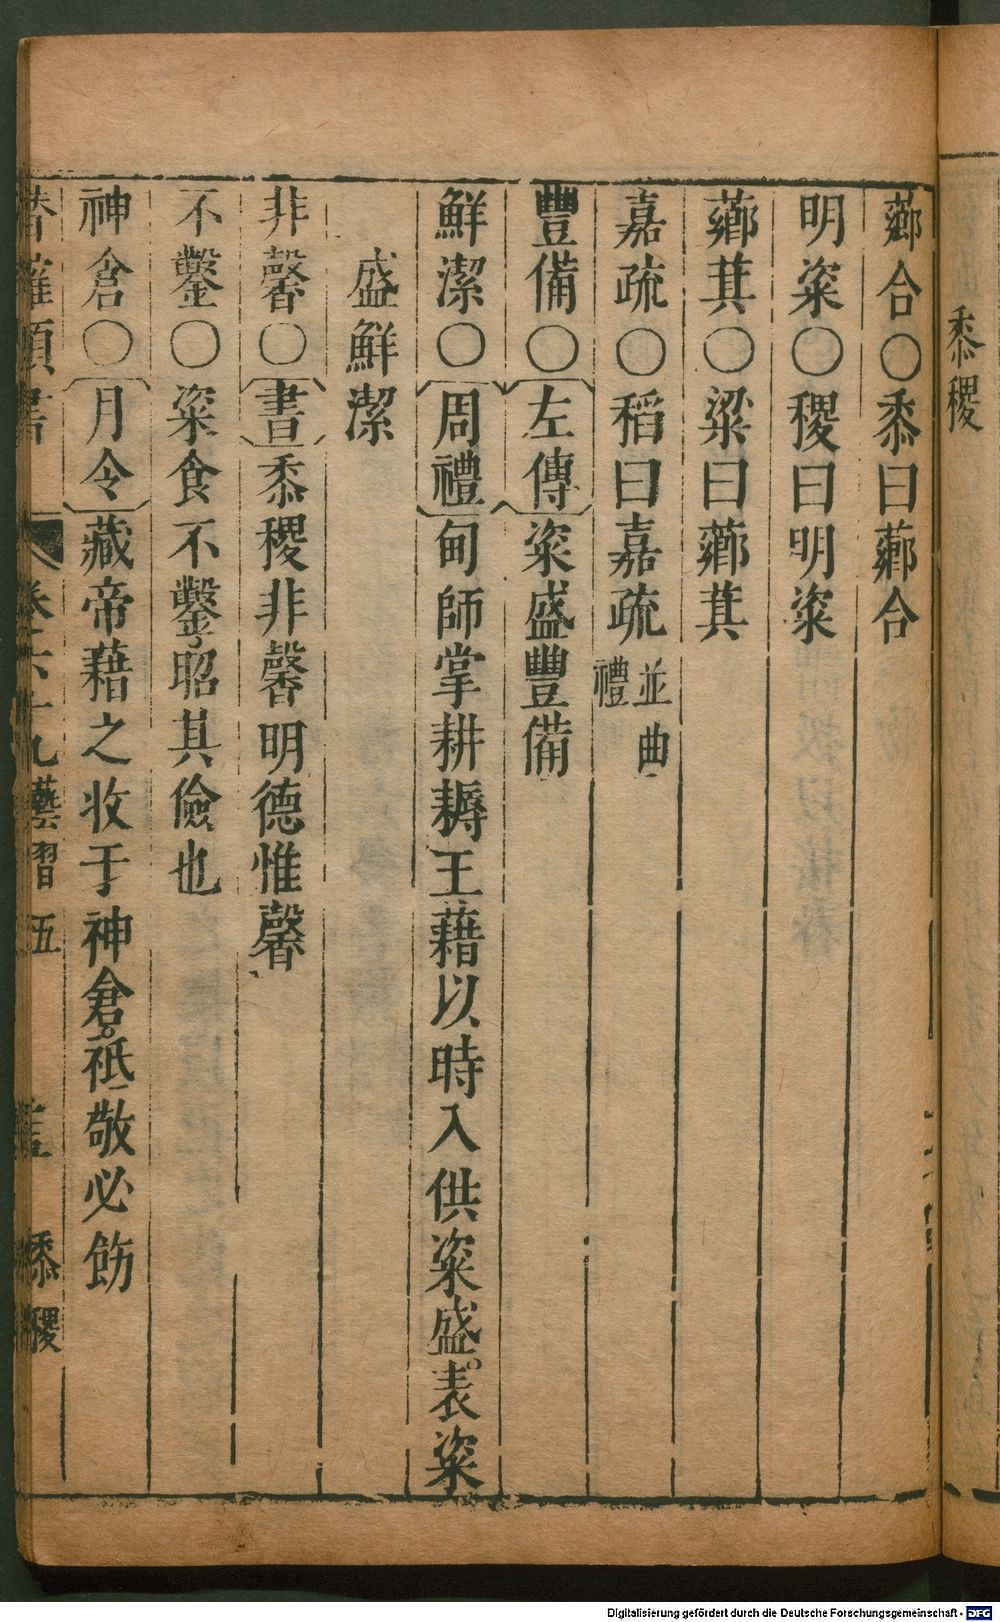 黍稷
薌合○黍曰薌合
明粢○稷曰明粢
薌萁○粱曰薌萁
嘉疏○稻曰嘉疏並曲禮
豐備○〔左傳〕粢盛豐備
鮮潔○〔周禮〕甸師掌耕耨王藉以時入供粢盛。表粢
盛鮮潔
非馨○〔書〕黍稷非馨明德惟馨
不鑿○粢食不鑿昭其儉也
神倉○〔月令〕藏帝藉之收于神倉。祗敬必飭
卷六十九 藝習五 黍稷
Digitalisierung gefördert durch die Deutsche Forschungsgemeinschaft - DFG